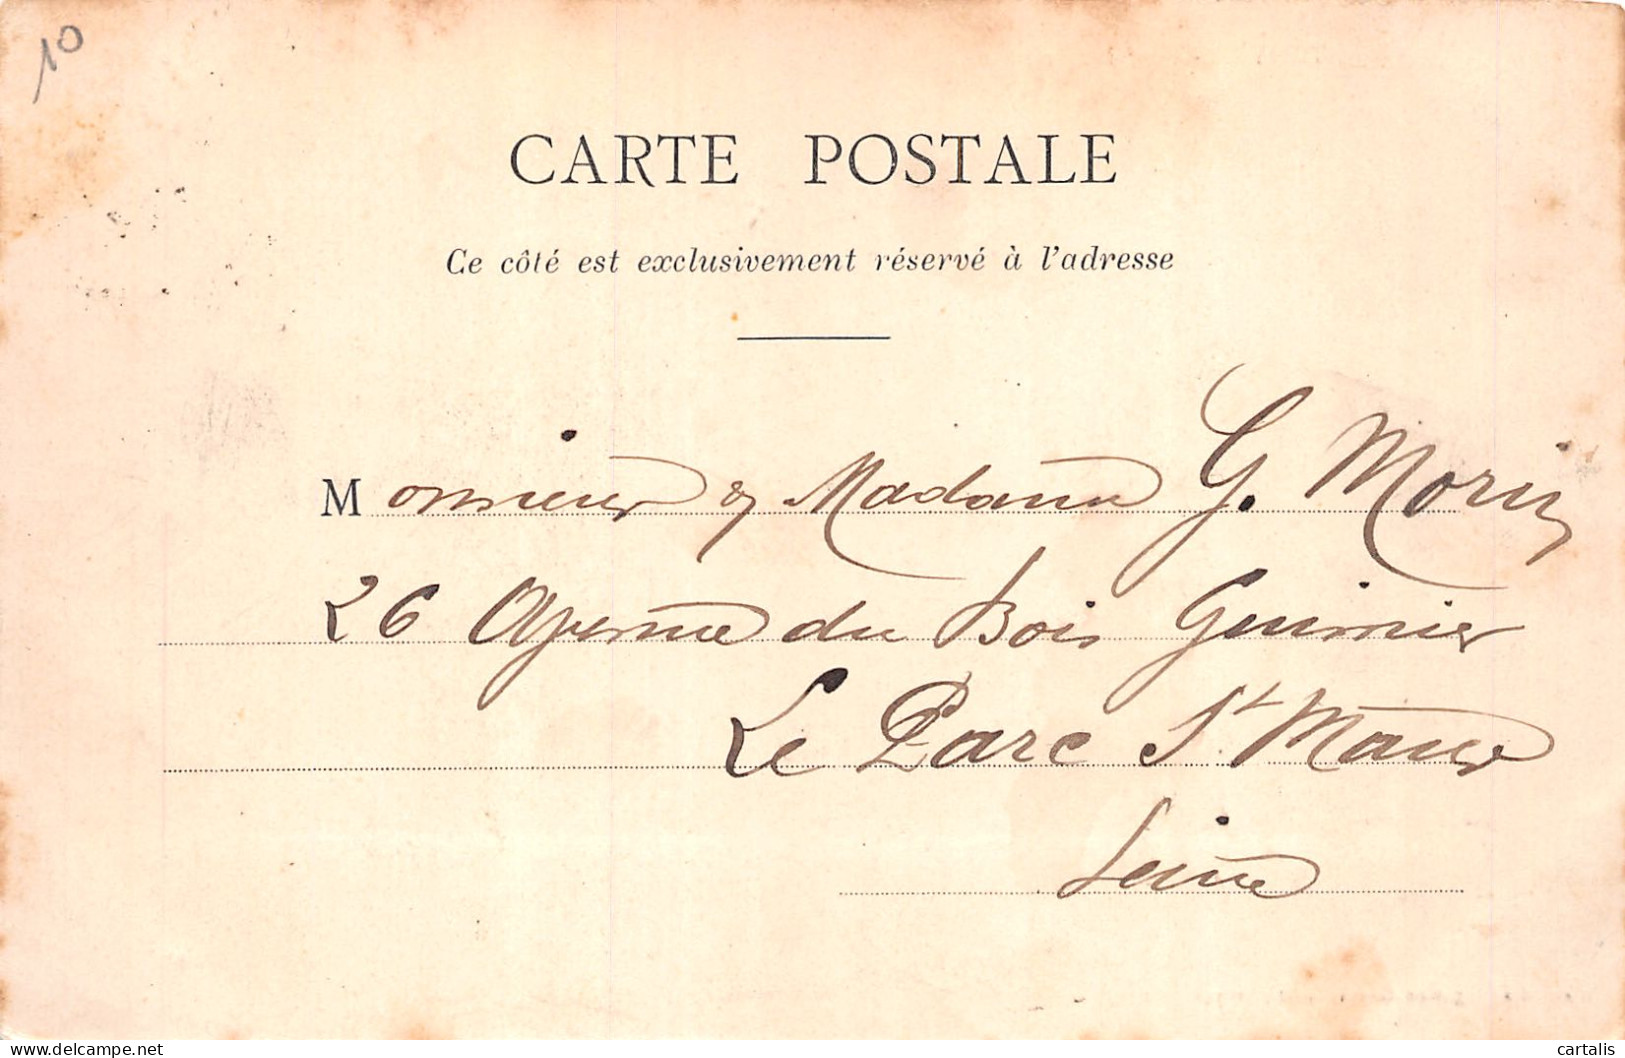 10
CARTE POSTALE
Ce côté est exclusivement réservé à l'adresse
Monsieur & Madame G. Morin
26 Avenue du Bois Guimier
Le Parc St. Maur
Seine
delcampe.net
cartalis